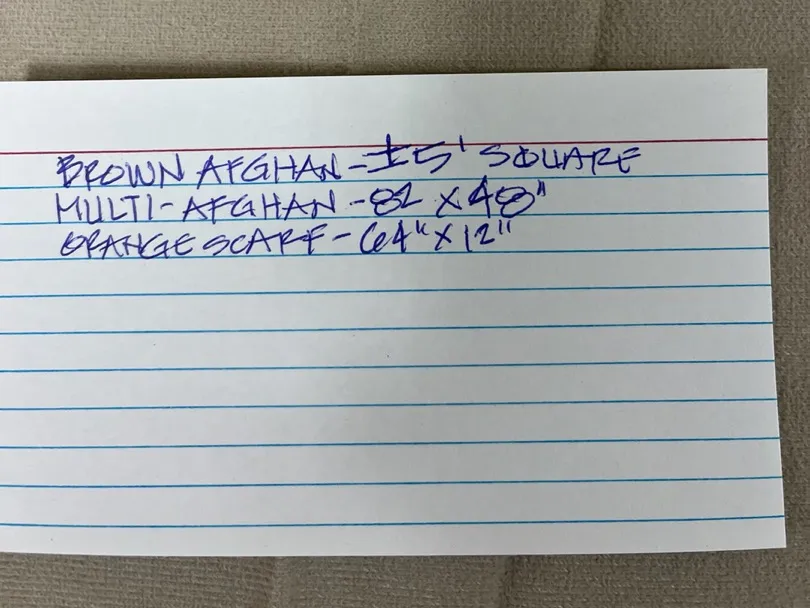 BROWN AFGHAN - ±5' SQUARE
MULTI-AFGHAN - 82 X 48"
ORANGE SCARF - 64" X 12"